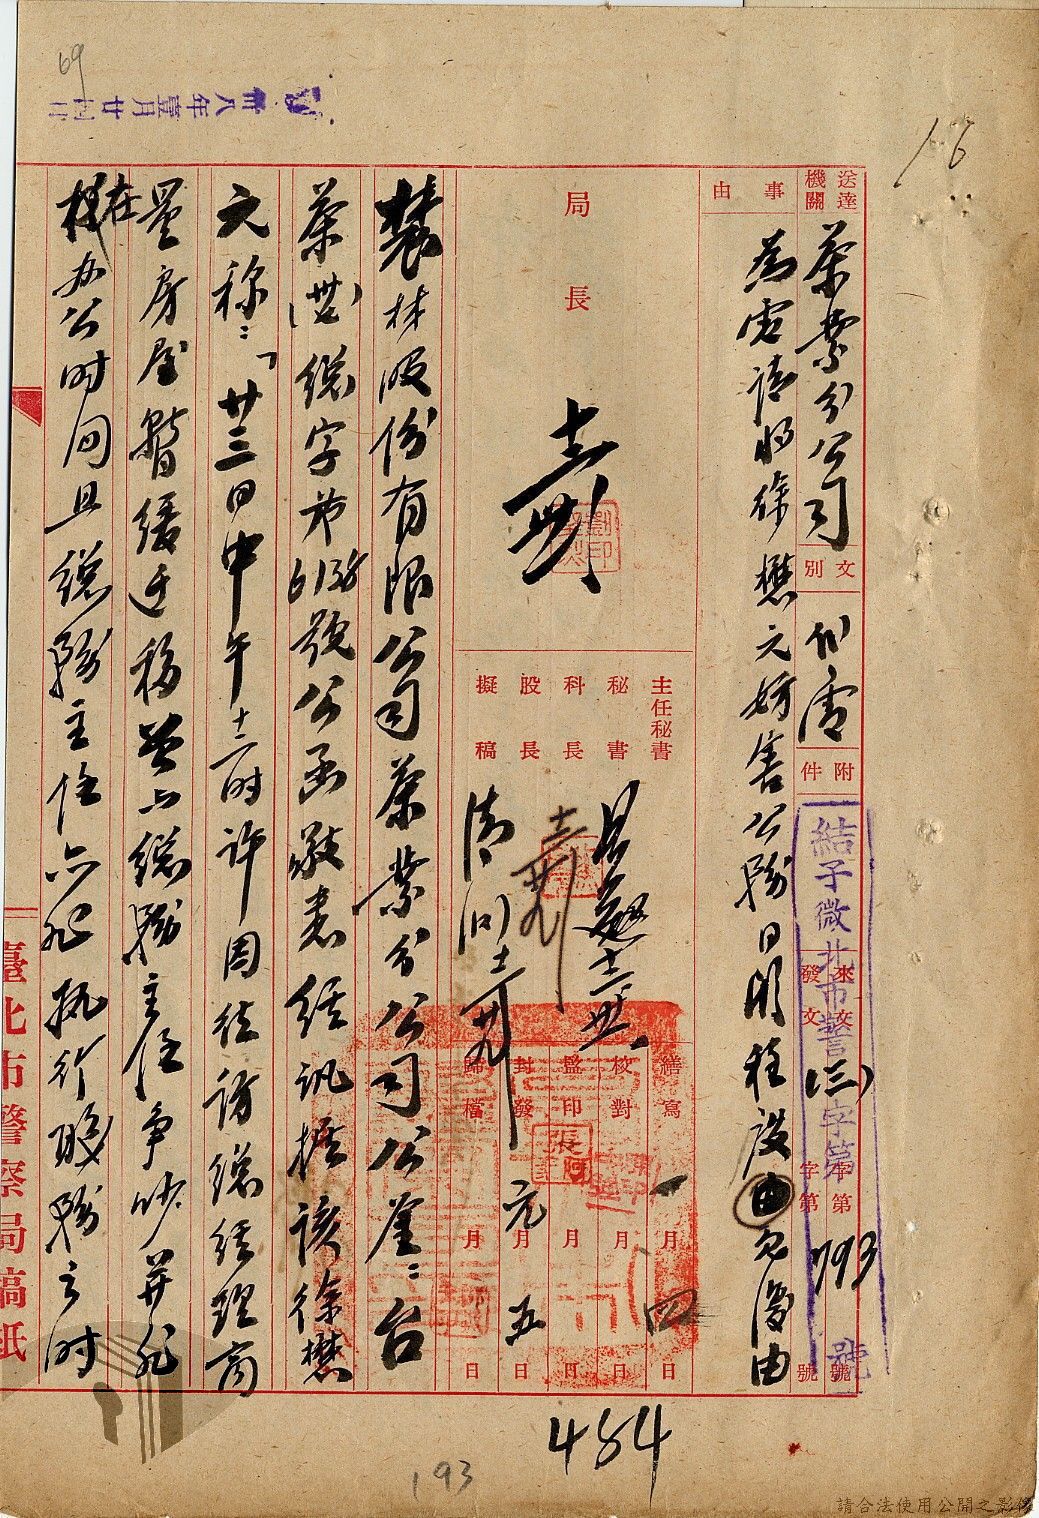 69
卅八年壹月廿四日
16
送達機關
茶業分公司
文別
代電
附件
結子微北市警(三)字第793號
來文 字第 號
發文 字第 號
事由
為電請將徐懋元妨害公務日期種設由
局長
主任秘書
秘書
科長
股長
擬稿
繕寫 一月四日
校對 月 日
監印 月 日
封發 元月五日
歸檔 月 日
農林股份有限公司茶業分公司公鑒：台
茶(卅)總字第6138號公函敬悉經訊據該徐懋
元称：「廿三日中午十二时许因徃訪總經理商
量房屋暫緩迁移並與總務主任争吵并非
在辦公时间且總務主任六非执行職務之时
臺北市警察局稿紙
484
193
請合法使用公開之影像